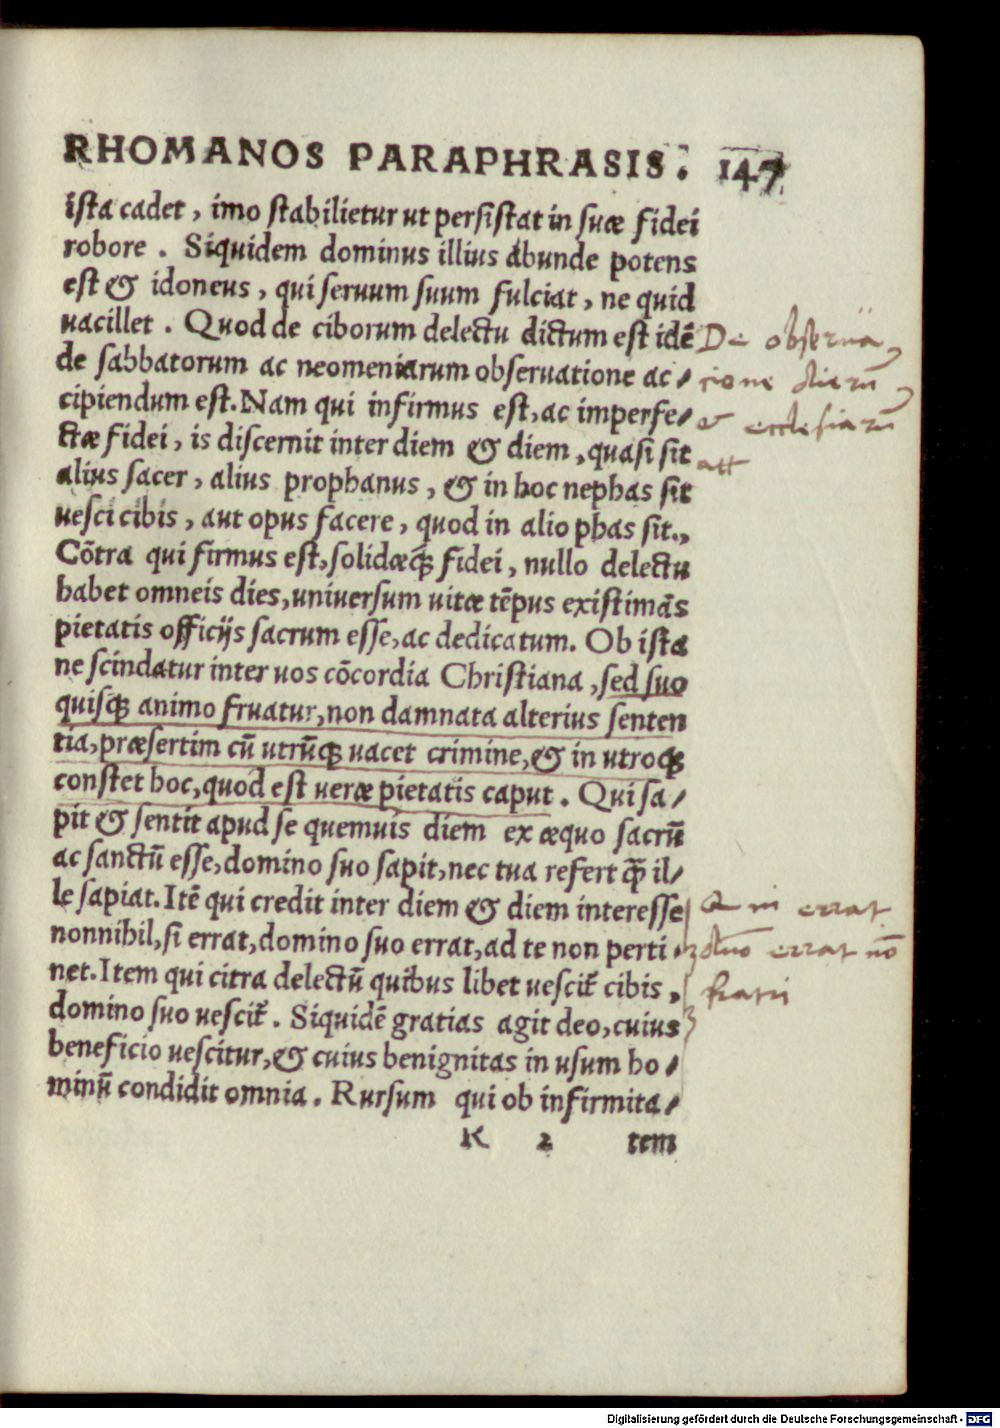 RHOMANOS PARAPHRASIS. 147
ista cadet, imo stabilietur ut persistat in suæ fidei
robore. Siquidem dominus illius abunde potens
est & idoneus, qui seruum suum fulciat, ne quid
uacillet. Quod de ciborum delectu dictum est idē
de sabbatorum ac neomeniarum obseruatione ac/
cipiendum est. Nam qui infirmus est, ac imperfe/
ctæ fidei, is discernit inter diem & diem, quasi sit
alius sacer, alius prophanus, & in hoc nephas sit
uesci cibis, aut opus facere, quod in alio phas sit.,
Cōtra qui firmus est, solidæq́; fidei, nullo delectu
habet omneis dies, uniuersum uitæ tēpus existimās
pietatis officijs sacrum esse, ac dedicatum. Ob ista
ne scindatur inter uos cōcordia Christiana, sed suo
quisq; animo fruatur, non damnata alterius senten
tia, præsertim cū utrūq; uacet crimine, & in utroq;
constet hoc, quod est ueræ pietatis caput. Qui sa/
pit & sentit apud se quemuis diem ex æquo sacrū
ac sanctū esse, domino suo sapit, nec tua refert q̄ il/
le sapiat. Itē qui credit inter diem & diem interesse
nonnihil, si errat, domino suo errat, ad te non perti
net. Item qui citra delectū quibus libet uescit̄ cibis,
domino suo uescit̄. Siquidē gratias agit deo, cuius
beneficio uescitur, & cuius benignitas in usum ho/
minū condidit omnia. Rursum qui ob infirmita/
K 2 tem
De obserua
cione dierū
& ecclesiarū
Qui errat
dn̄o errat nō
fratri
Digitalisierung gefördert durch die Deutsche Forschungsgemeinschaft - DFG